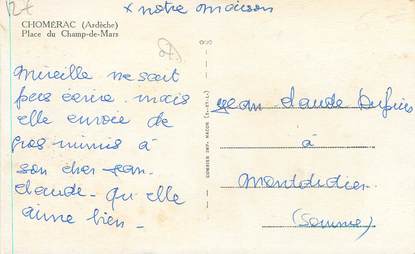 x notre maison
CHOMERAC (Ardèche)
Place du Champ-de-Mars
Mireille ne sait
pas écrire mais
elle envoie de
gros mimis à
son cher Jean.
Claude - qu'elle
aime bien -
COMBIER IMP. MACON (S.-ET-L.)
Jean Claude Dupuis
à
Montdidier
(Somme)